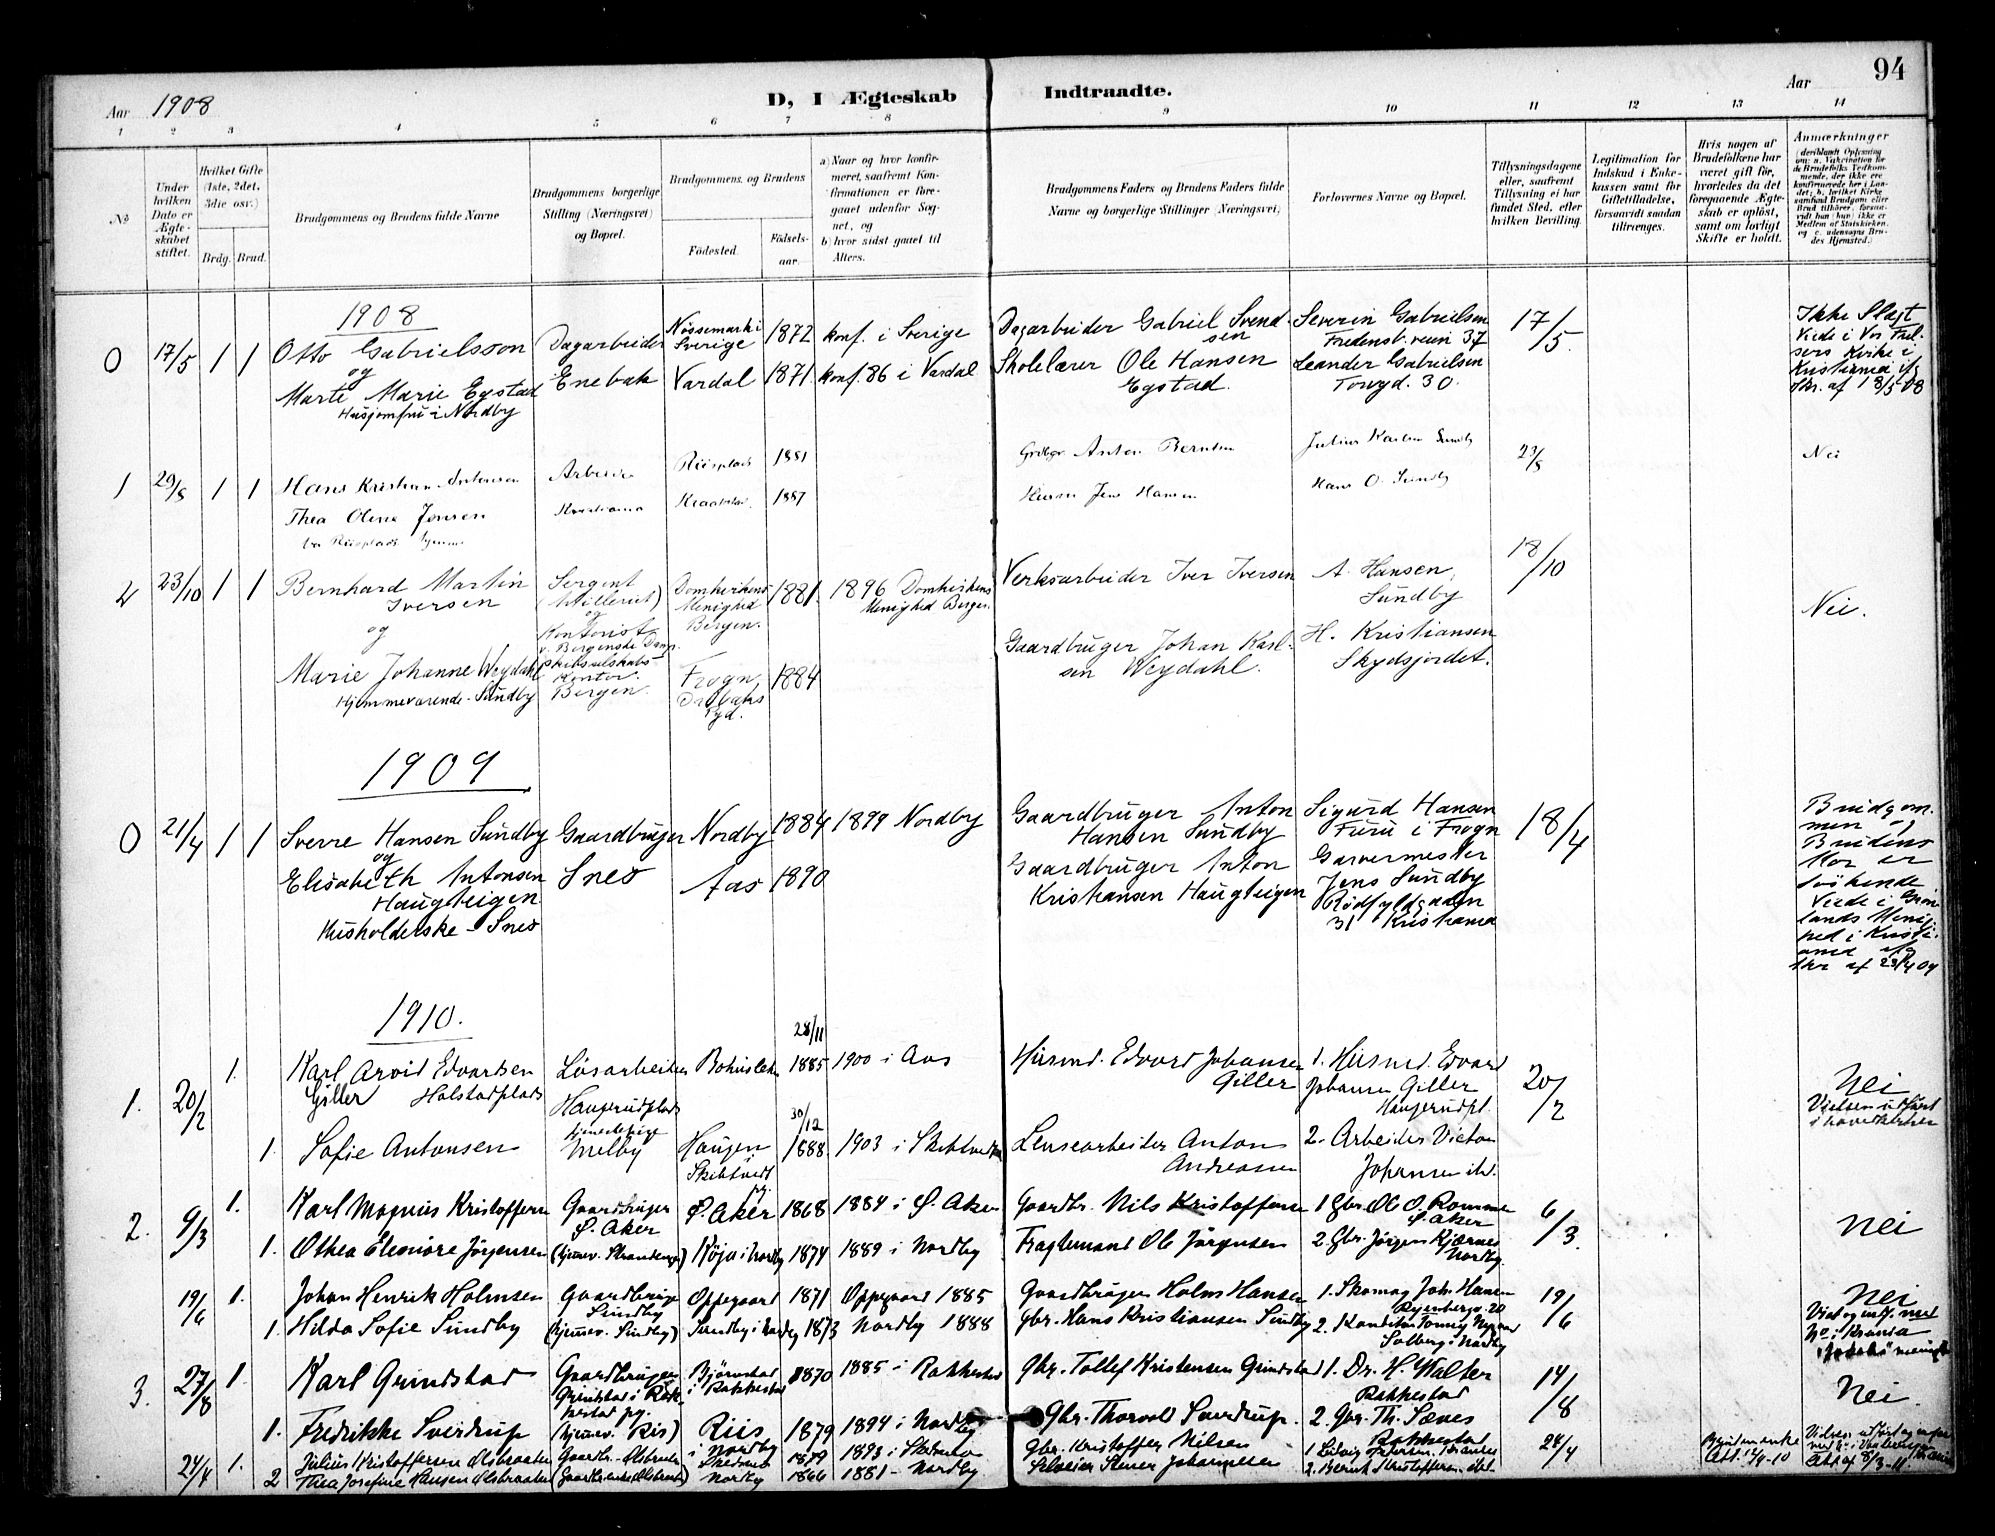 94
Aar 1908
D, I Ægteskab Indtraadte.
Aar
1 2 3 4 5 6 7 8 9 10 11 12 13 14
No
Under hvilken Dato er Ægteskabet stiftet.
Hvilket Gifte (1ste, 2det, 3die osv.)
Brdg. Brud.
Brudgommens og Brudens fulde Navne
Brudgommens borgerlige Stilling (Næringsvei) og Bopæl.
Brudgommens og Brudens
Födested.
Födselsaar.
a) Naar og hvor konfirmeret, saafremt Konfirmationen er foregaaet udenfor Sognet, og
b) hvor sidst gaaet til Alters.
Brudgommens Faders og Brudens Faders fulde Navne og borgerlige Stillinger (Næringsvei)
Forlovernes Navne og Bopæl.
Tillysningsdagene eller, saafremt Tillysning ei har fundet Sted, efter hvilken Bevilling.
Legitimation for Indskud i Enkekassen samt for Giftetilladelse, forsaavidt saadan tiltrænges.
Hvis nogen af Brudefolkene har været gift før, hvorledes da det foregaaende Ægteskab er opløst, samt om lovligt Skifte er holdt.
Anmærkninger
1908
0 17/5 1 1 Otto Gabrielsson Dagarbeider Nössemark i Sverige 1872 konf. i Sverige Dagarbeider Gabriel Svendsen Severin Gabrielsen Fredensb.veien 37 17/5
og
Marte Marie Egstad Enebak Vardal 1871 konf. 86 i Vardal Skolelærer Ole Hansen Egstad. Leander Gabrielsen Torvgd. 30.
Husjomfru i Nordby
Ikke Slegt
Viede i Vor Frelsers Kirke i Kristiania
18/5 08
1 29/8 1 1 Hans Kristian Antonsen Arbeider Riisplads 1881 Grdbgr Anton Berntsen Julius Karlsen Sundby 23/8 Nei
Thea Oline Jensen Kristiania Kraakstad 1887 Husm Jens Hansen Hans O. Sundby
2 23/10 1 1 Bernhard Martin Iversen Sergent (Artilleriet) Domkirkens Menighed Bergen. 1881. 1896 Domkirkens Menighed Bergen. Verksarbeider Iver Iversen A. Hansen, Sundby 18/10 Nei.
og
og Kontorist v. Bergenske Dampskibsselskabs Kontor. Bergen.
Marie Johanne Weydahl Frogn Drøbaks Pgd. 1884 Gaardbruger Johan Karlsen Weydahl. H. Kristiansen Skydsjordet.
Hjemmeværende - Sundby
1909
0 21/4 1 1 Sverre Hansen Sundby Gaardbruger Nordby 1884 1899 Nordby Gaardbruger Anton Hansen Sundby Sigurd Hansen Furu i Frogn 18/4
og
Elisabeth Antonsen Haugteigen Snes Aas 1890 Gaardbruger Anton Kristiansen Haugteigen Garvermester Jens Sundby Rødfyldgaden 31 Kristiania
Husholderske - Snes
Brudgommen og Brudens Mor er søskende
Viede i Grønlands Menighed i Kristiania
af 23/4 09
1910.
28/11
1. 20/2 1. Karl Arvid Edvartsen Giller Halstadplads Løsarbeider Haugerudplads Bohuslehn 1885 1900 i Aas Husmd. Edvard Johansen Giller 1. Husmd. Edvard Johansen Giller Haugerudpl. 20/2 Nei
Vielsen utført i hovedkirken
30/12
1. Sofie Antonsen hjemehørige Melby Haugen Skibtvedt pg. 1888. 1903 i Skibtvedt Lensearbeider Anton Andreassen 2. Arbeider Victor Johansen ibd.
2. 9/3 1. Karl Magnus Kristoffersen Gaardbruger Ø. Aker Ø. Aker 1868 1884 i Ø. Aker Gaardbr. Nils Kristoffersen 1 Gbr. Ole O. Rommen Ø. Aker 6/3. nei
1. Othea Eleonore Jørgensen (hjemv. Strandengen) Røja i Nordby 1874 1889 i Nordby Fragtemand Ole Jørgensen 2. Gbr. Jørgen Kjærnes Nordby.
19/6 1. Johan Henrik Holmsen Gaardbruger Sundby Oppegaard 1871 Oppegaard 1885 Gaardbruger Holm Hansen 1. Skomag Joh. Hansen Ryenbergv. 20 19/6 nei
1. Hilda Sofie Sundby (hjemv. Sundby) Sundby i Nordby 1873 Nordby 1888 Gbr. Hans Kristiansen Sundby 2. Solberg i Nordby
3. 27/8 1. Karl Grindstad Gaardbruger Grindstad i Rakkestad pg. Bjørnstad i Rakkestad 1870 1885 i Rakkestad Gbr. Tollef Kristensen Grindstad 1. Dr. H. Walter Rakkestad 14/8 nei.
1. Fredrikke Sverdrup (hjemv. Ris) Riis i Nordby 1879 1894 i Nordby Gbr. Thorvald Sverdrup. 2. Gbr. Th. Sænes Rakkestad
24/4 1. Julius Kristoffersen Olsbraaten Gaardbr. Olsbraaten 1879 1893 i Gbr. Kristoffer Nilsen 1 Ludvig Pedersen 24/4
2 Thea Josefine Hansen Olsbraaten Nordby 1866 1881 - Nordby Johannesen 2. Bernt Kristoffersen ibd.